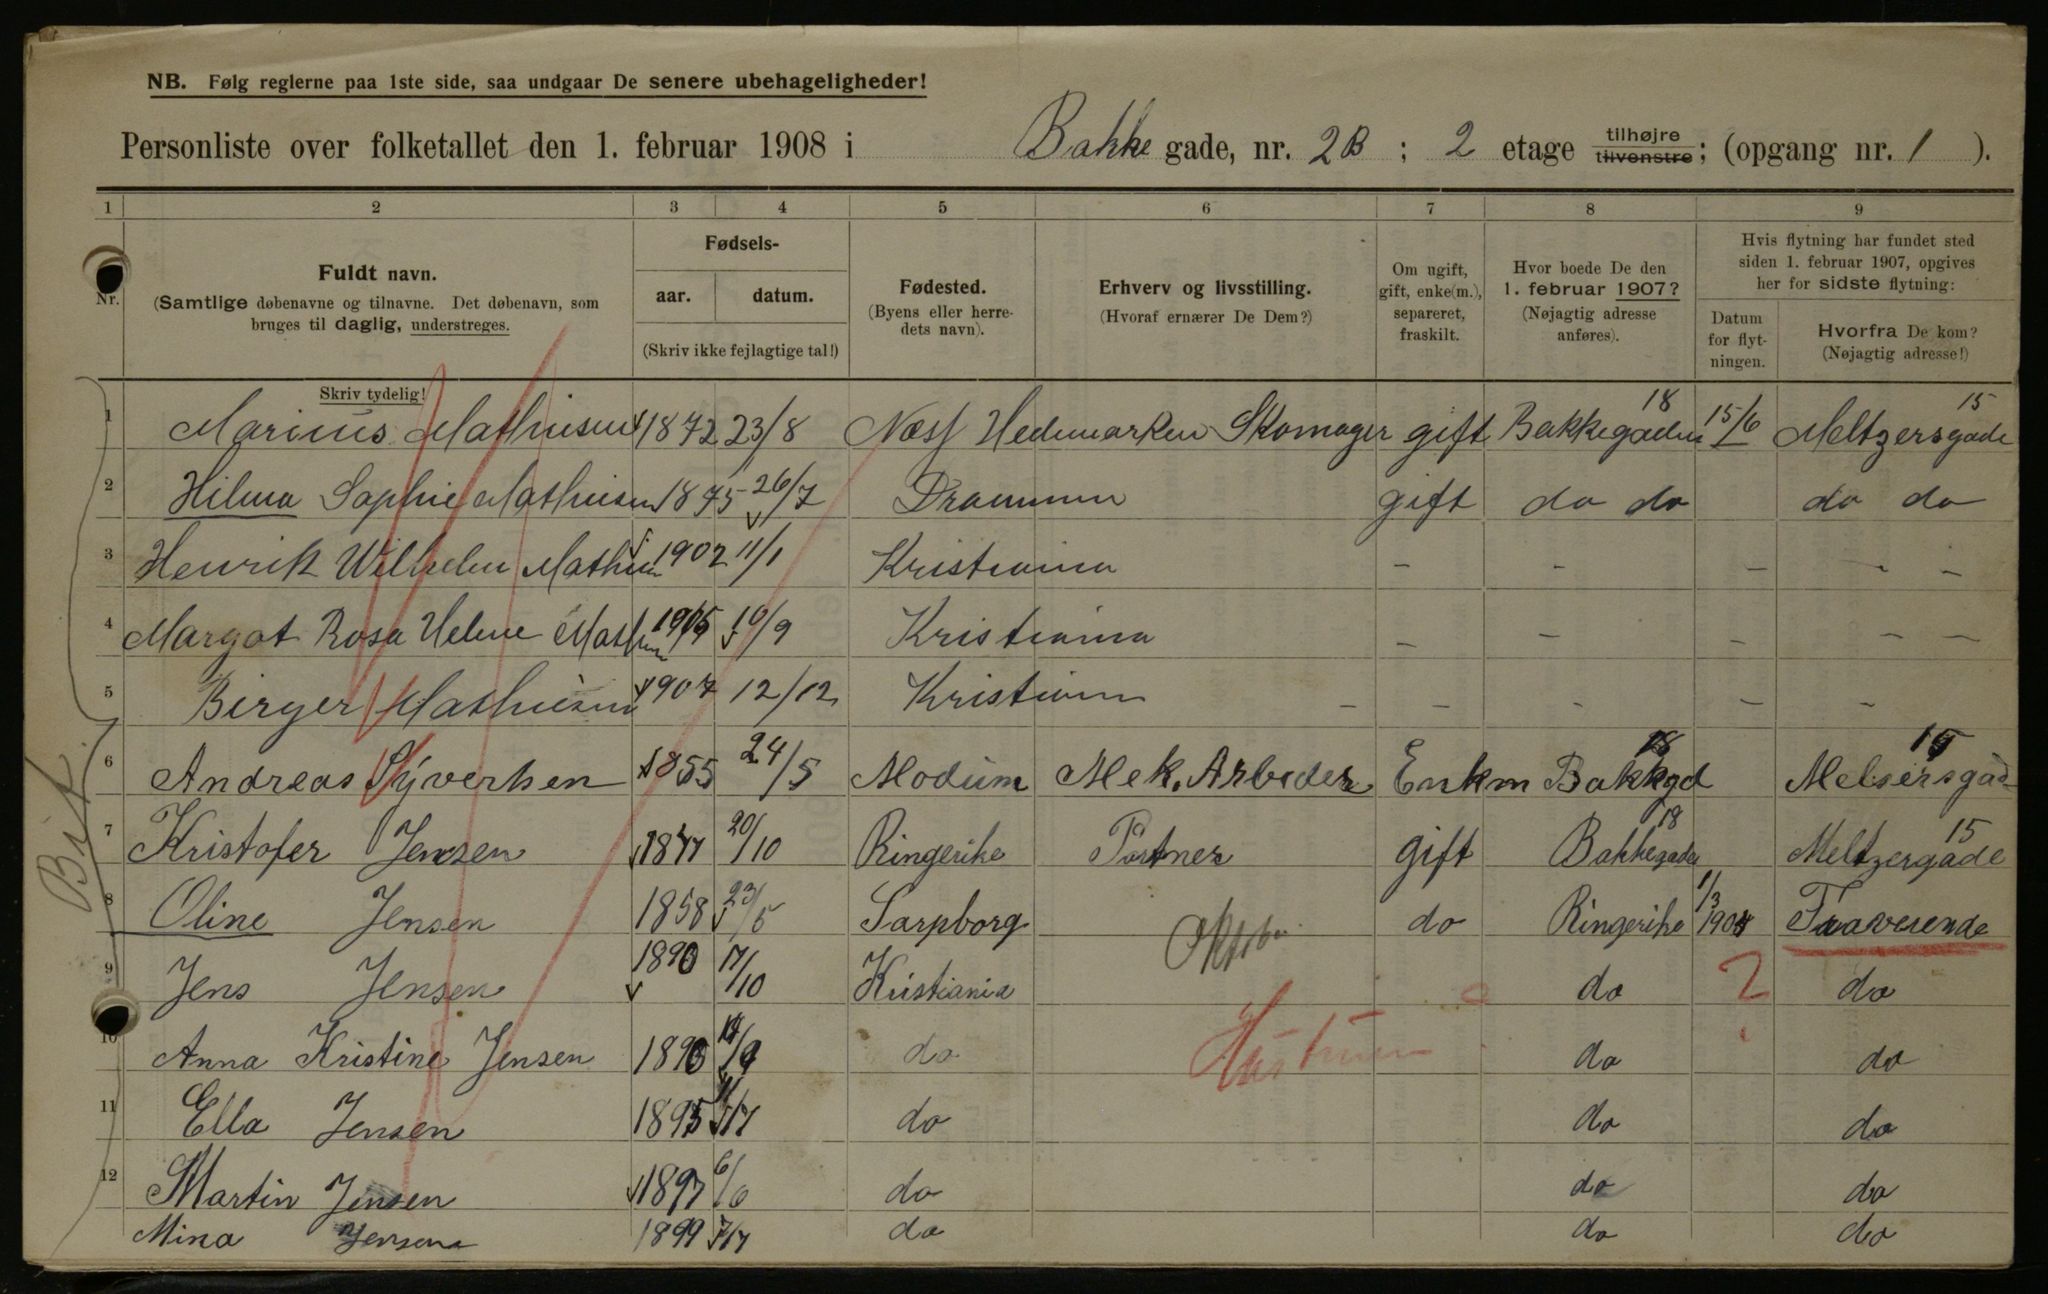 NB. Følg reglerne paa 1ste side, saa undgaar De senere ubehageligheder!
Personliste over folketallet den 1. februar 1908 i Bakke gade, nr. 2B ; 2 etage tilhøjre tilvenstre; (opgang nr. 1 ).
1 2 3 4 5 6 7 8 9
Nr.
Fuldt navn.
(Samtlige døbenavne og tilnavne. Det døbenavn, som
bruges til daglig, understreges.
Skriv tydelig!
Fødsels-
aar. datum.
(Skriv ikke fejlagtige tal!)
Fødested.
(Byens eller herre-
dets navn).
Erhverv og livsstilling.
(Hvoraf ernærer De Dem?)
Om ugift,
gift, enke(m.),
separeret,
fraskilt.
Hvor boede De den
1. februar 1907?
(Nøjagtig adresse
anføres).
Hvis flytning har fundet sted
siden 1. februar 1907, opgives
her for sidste flytning:
Datum
for flyt-
ningen.
Hvorfra De kom?
(Nøjagtig adresse!)
1 Marius Mathiesen 1872 23/8 Næs Hedemarken Skomager gift Bakkegaden 18 15/6 Meltzersgade 15
2 Hilma Sophie Mathiesen 1875 26/7 Drammen gift do do do do
3 Henrik Wilhelm Mathiesen 1902 11/1 Kristiania - - - - -
4 Margot Rosa Helene Math 1905 10/9 Kristiania - - - - -
5 Birger Mathiesen 1907 12/12 Kristiania - - - - -
6 Andreas Syvertsen 1855 24/5 Modum Mek. Arbeder Enkm Bakkgd 18 Melsersgad 15
7 Kristofer Jensen 20/10 Ringerike Portner gift Bakkegaden 18 Meltzergade 15
8 Oline Jensen 1858 23/5 Sarpborg do Ringerike 1/3
9 Jens Jensen 1890 17/10 Kristiania do ? do
10 Anna Kristine Jensen 1890 do Hustruen do do
11 Ella Jensen 1895 do do do
12 Martin Jensen 1897 6/6 do do do
Mina Jensen 1899 7/7 do do do